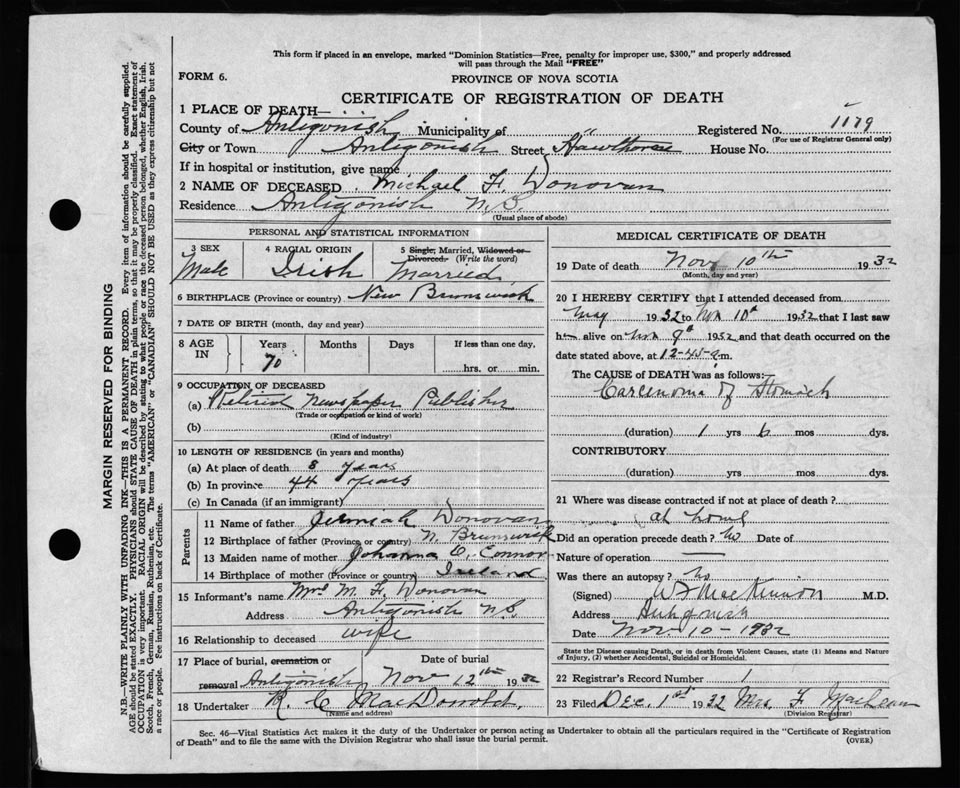 This form if placed in an envelope, marked "Dominion Statistics—Free, penalty for improper use, $300," and properly addressed
will pass through the Mail "FREE"
FORM 6.
PROVINCE OF NOVA SCOTIA
CERTIFICATE OF REGISTRATION OF DEATH
1 PLACE OF DEATH—
County of Antigonish Municipality of Registered No. 1179
(For use of Registrar General only)
City or Town Antigonish Street Hawthorne House No.
If in hospital or institution, give name
2 NAME OF DECEASED Michael F. Donovan
Residence Antigonish N.S.
(Usual place of abode)
PERSONAL AND STATISTICAL INFORMATION
3 SEX 4 RACIAL ORIGIN 5 Single, Married, Widowed or
Divorced. (Write the word)
Male Irish Married
6 BIRTHPLACE (Province or country) New Brunswick
7 DATE OF BIRTH (month, day and year)
8 AGE IN Years Months Days If less than one day,
70 hrs. or min.
9 OCCUPATION OF DECEASED
(a) Retired Newspaper Publisher
(Trade or occupation or kind of work)
(b)
(Kind of industry)
10 LENGTH OF RESIDENCE (in years and months)
(a) At place of death 8 years
(b) In province 44 years
(c) In Canada (if an immigrant)
Parents
11 Name of father Jermiah Donovan
12 Birthplace of father (Province or country) N. Brunswick
13 Maiden name of mother Johanna C. Connor
14 Birthplace of mother (Province or country) Ireland
15 Informant's name Mrs M. F. Donovan
Address Antigonish N.S
16 Relationship to deceased wife
17 Place of burial, cremation or Date of burial
removal Antigonish Nov 12th 1932
18 Undertaker R. C. MacDonald.
(Name and address)
MEDICAL CERTIFICATE OF DEATH
19 Date of death Nov 10th 1932
(Month, day and year)
20 I HEREBY CERTIFY that I attended deceased from
May 1932 to Nov 10th 1932 that I last saw
him alive on Nov 9th 1932 and that death occurred on the
date stated above, at 12-45-a.m.
The CAUSE of DEATH was as follows:
Carcenoma of Stomach
(duration) 1 yrs 6 mos dys.
CONTRIBUTORY
(duration) yrs mos dys.
21 Where was disease contracted if not at place of death?
at home
Did an operation precede death? No Date of
Nature of operation —
Was there an autopsy? No
(Signed) W F MacKinnon M.D.
Address Antigonish
Date Nov. 10- 1932
State the Disease causing Death, or in death from Violent Causes, state (1) Means and Nature
of Injury, (2) whether Accidental, Suicidal or Homicidal.
22 Registrar's Record Number 1
23 Filed Dec. 1st 1932 Mrs. F. MacLean
(Division Registrar)
Sec. 46—Vital Statistics Act makes it the duty of the Undertaker or person acting as Undertaker to obtain all the particulars required in the "Certificate of Registration
of Death" and to file the same with the Division Registrar who shall issue the burial permit.
(OVER)
MARGIN RESERVED FOR BINDING
N.B.—WRITE PLAINLY WITH UNFADING INK—THIS IS A PERMANENT RECORD. Every item of information should be carefully supplied.
AGE should be stated EXACTLY. PHYSICIANS should STATE CAUSE OF DEATH in plain terms, so that it may be properly classified. Exact statement of
OCCUPATION is very important. RACIAL ORIGIN will be described by stating to what people or race the deceased person belonged, whether English, Irish,
Scotch, French, German, Russian, Ruthenian, etc. The terms "AMERICAN" or "CANADIAN" SHOULD NOT BE USED as they express citizenship but not
a race or people. See instructions on back of Certificate.